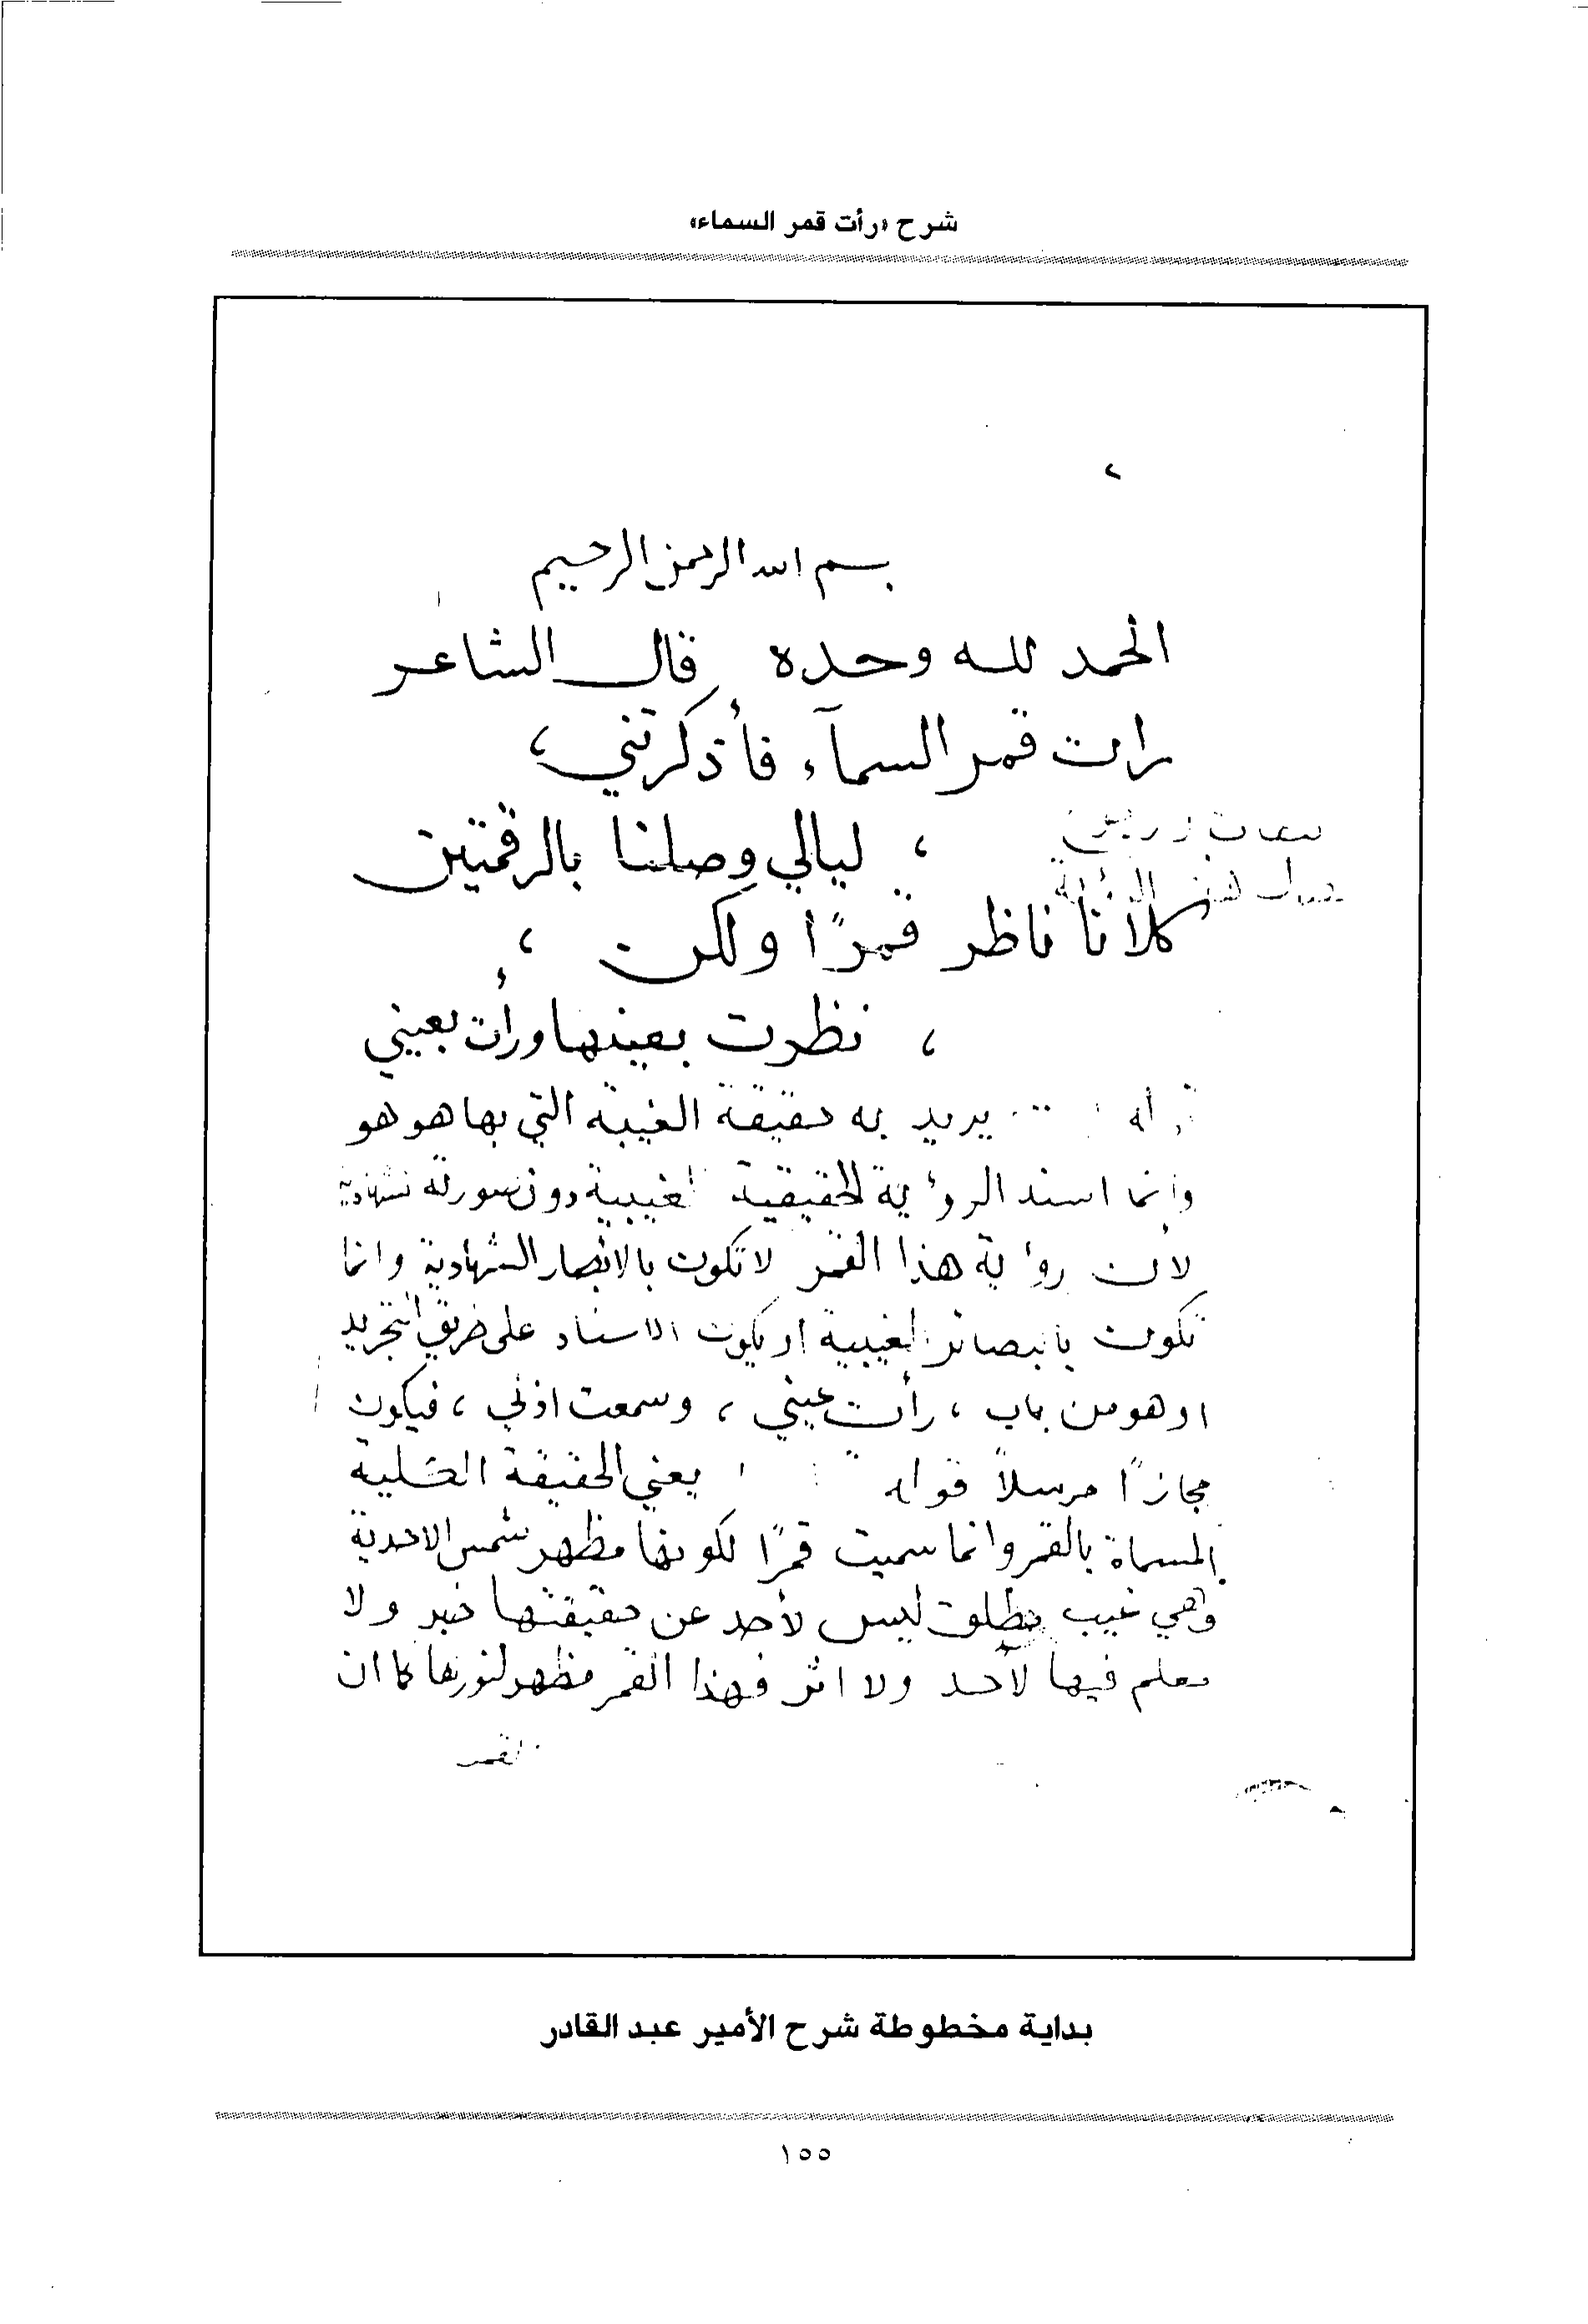 شرح «رأت قمر السماء»
بسم الله الرحمن الرحيم
الحمد لله وحده قال الشاعر
رات قمر السمآء فأذكرتني ،
، ليالي وصلنا بالرقمتين
كلانا ناظر قمرًا ولكن ،
، نظرت بعينها ورأت بعيني
يريد به حقيقة الغيبة التي بها هو هو
وانما اسند الرؤية للحقيقية الغيبية دون صورته
لان رؤية هذا القمر لا تكون بالابصار الشهادية وانما
تكون بالبصائر الغيبية او يكون الاسناد على طريق التجريد
او هو من باب ، رأت عيني ، وسمعت اذني ، فيكون
مجازًا مرسلاً قوله يعني الحقيقة
المسماة بالقمر وانما سميت قمرًا لكونها مظهر شمس الاحدية
وهي غيب مطلق ليس لأحد عن حقيقتها خبر ولا
معلم فيها لأحد ولا اثر فهذا القمر مظهر لنورها كما ان
القمر
بداية مخطوطة شرح الأمير عبد القادر
١٥٥